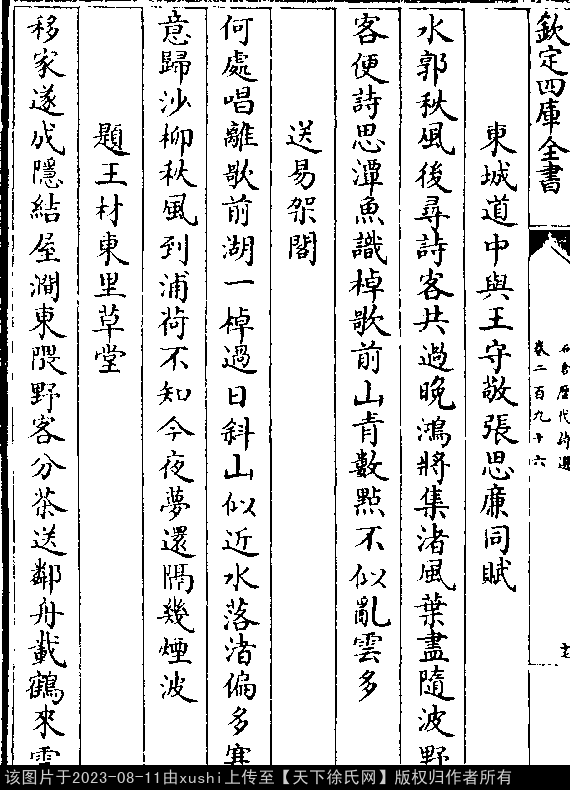 欽定四庫全書
石倉歷代詩選
卷二百九十六
東城道中與王守敬張思廉同賦
水郭秋風後尋詩客共過晚鴻將集渚風葉盡隨波野
客便詩思潭魚識棹歌前山青數點不似亂雲多
送易架閣
何處唱離歌前湖一棹過日斜山似近水落渚偏多寒
意歸沙柳秋風到浦荷不知今夜夢還隔幾煙波
題王材東里草堂
移家遂成隱結屋澗東隈野客分茶送鄰舟載鶴來雲
该图片于2023-08-11由xushi上传至【天下徐氏网】版权归作者所有